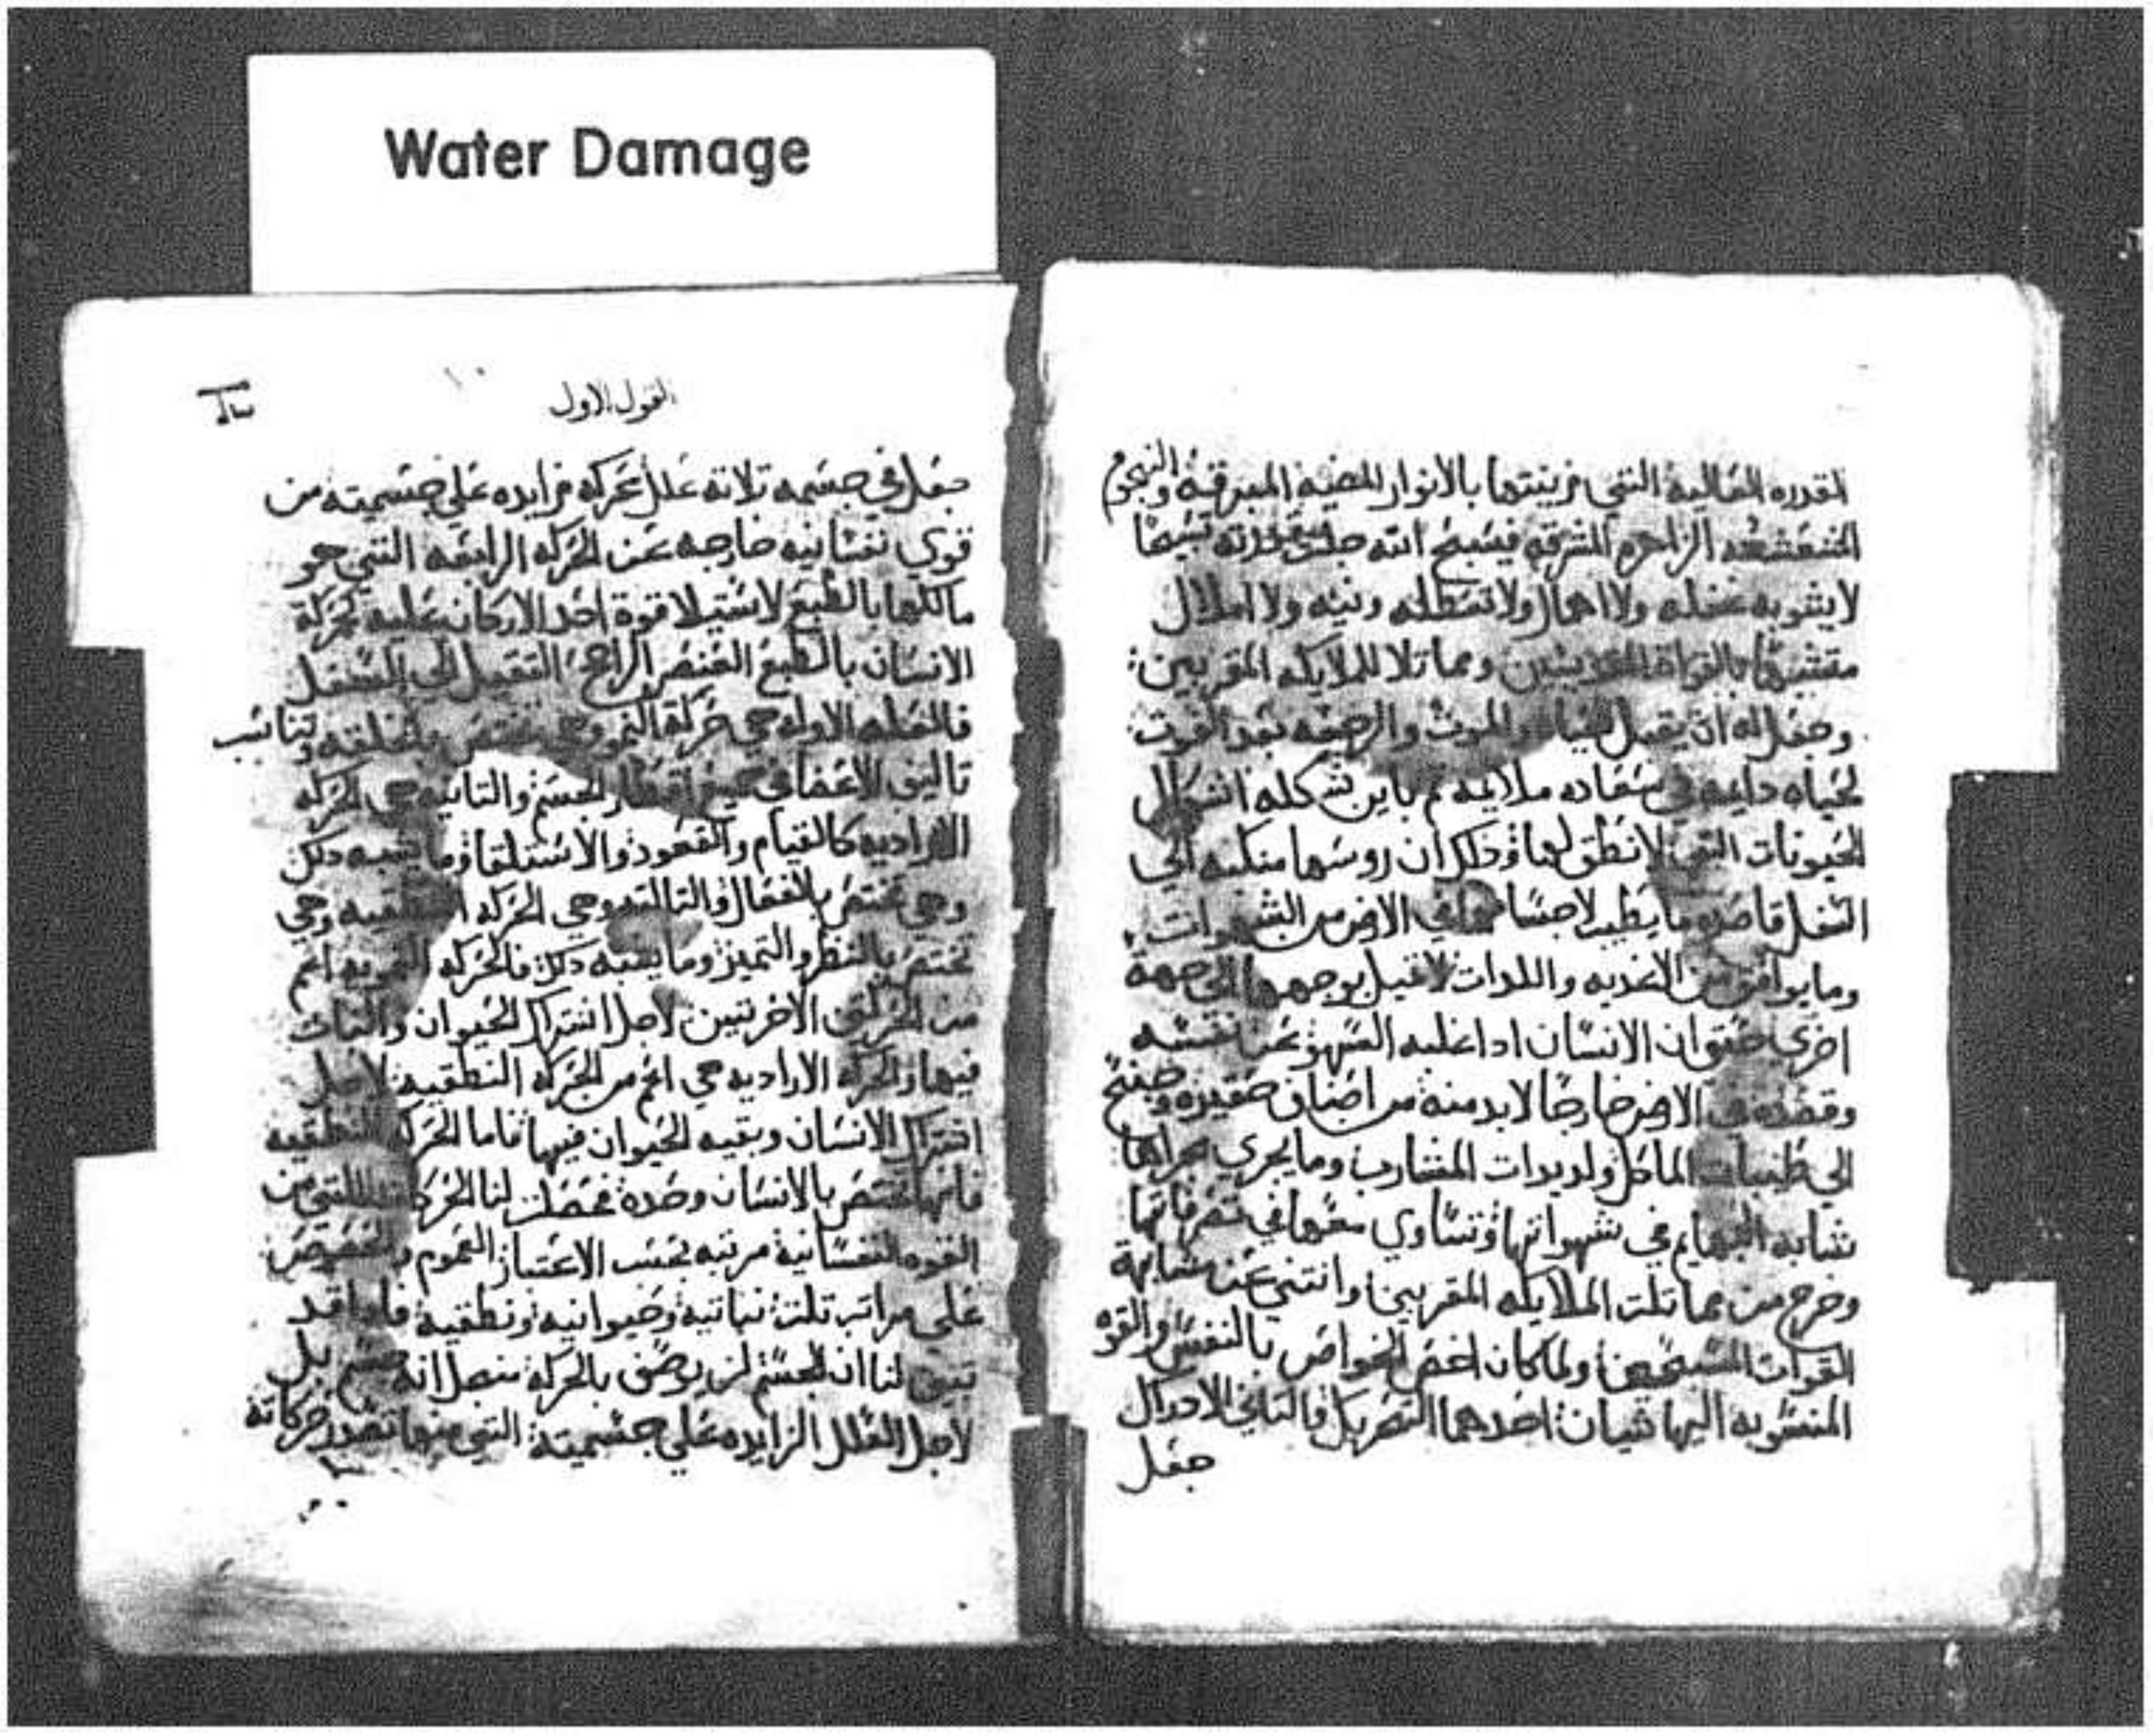 Water Damage
المقدره العاليه التي زينتها بالانوار المضيه المبرقه والنجوم
المتشعشعه الزاهره المشرقه فيسبح الله جلت قدرته تسبيحًا
لا يشوبه غفله ولا اهمال ولا تعطله ونيه ولا املال
متشبهًا بالقوات ومماثلا للملايكه المقربين
وجعل له ان يقبل والموت والرجعه بعد الموت
لحياه دايمه في سعاده ملايمه ثم باين شكله اشكال
الحيونات التي لا نطق لها وذلك ان روسها منكبه الي
السفل قاصده ما يطيب لاجسامها في الارض من الشهوات
وما يوافق من الاغديه واللدات لا تميل بوجهها الي جهة
اخري حتي ان الانسان ادا غلبه السهو عن نفسه
وقصده في الارض خارجا لابد منه من اصناف حقيره وجنح
الي طيبات الماكل ولديدات المشارب وما يجري مجراها
شابه البهايم في شهواتها وتساوي معها في تصرفاتها
وخرج من مماتلت الملايكه المقربين وانتني عن مشابهة
القوات المسبحين ولما كان اخص الخواص بالنفس والقوه
المنسوبه اليها شيان احدهما التحريك والتاني الادراك
جعل
القول الاول
جعل في جسمه تلاته علل محركه زايده علي جسميته من
قوي نفسانيه خارجه عن الحركه الرابعه التي هو
مالكها بالطبع لاستيلا قوة احد الاركان عليه كحركة
الانسان بالطبع العنصر الراجح التقيل الي السفل
فالعله الاوله هي حركة النمو وهي تختص بالخلقه وتناسب
تاليف الاعضا في اقطار الجسم والتانيه هي الحركه
الاراديه كالقيام والقعود والاستلقا وما يشبه دلك
وهي تختص بالافعال والتالته وهي الحركه النطقيه وهي
تختص بالنظر والتميز وما يشبه دلك فالحركه النمويه اعم
من الحركتين الاخرتين لاجل اشتراك الحيوان والنبات
فيها والحركه الاراديه هي اعم من الحركه النطقيه لاجل
اشتراك الانسان وبقيه الحيوان فيها فاما الحركه النطقيه
فانها تختص بالانسان وحده فحصلت لنا الحركات التي من
القوه النفسانية مرتبه بحسب الاعتبار العموم والخصوص
علي مراتب تلت نباتيه وحيوانيه ونطقيه فاد قد
تبين لنا ان الجسم لن يوصف بالحركه من قبل انه جسم بل
لاجل العلل الزايده علي جسميته التي منها تصدر حركاته